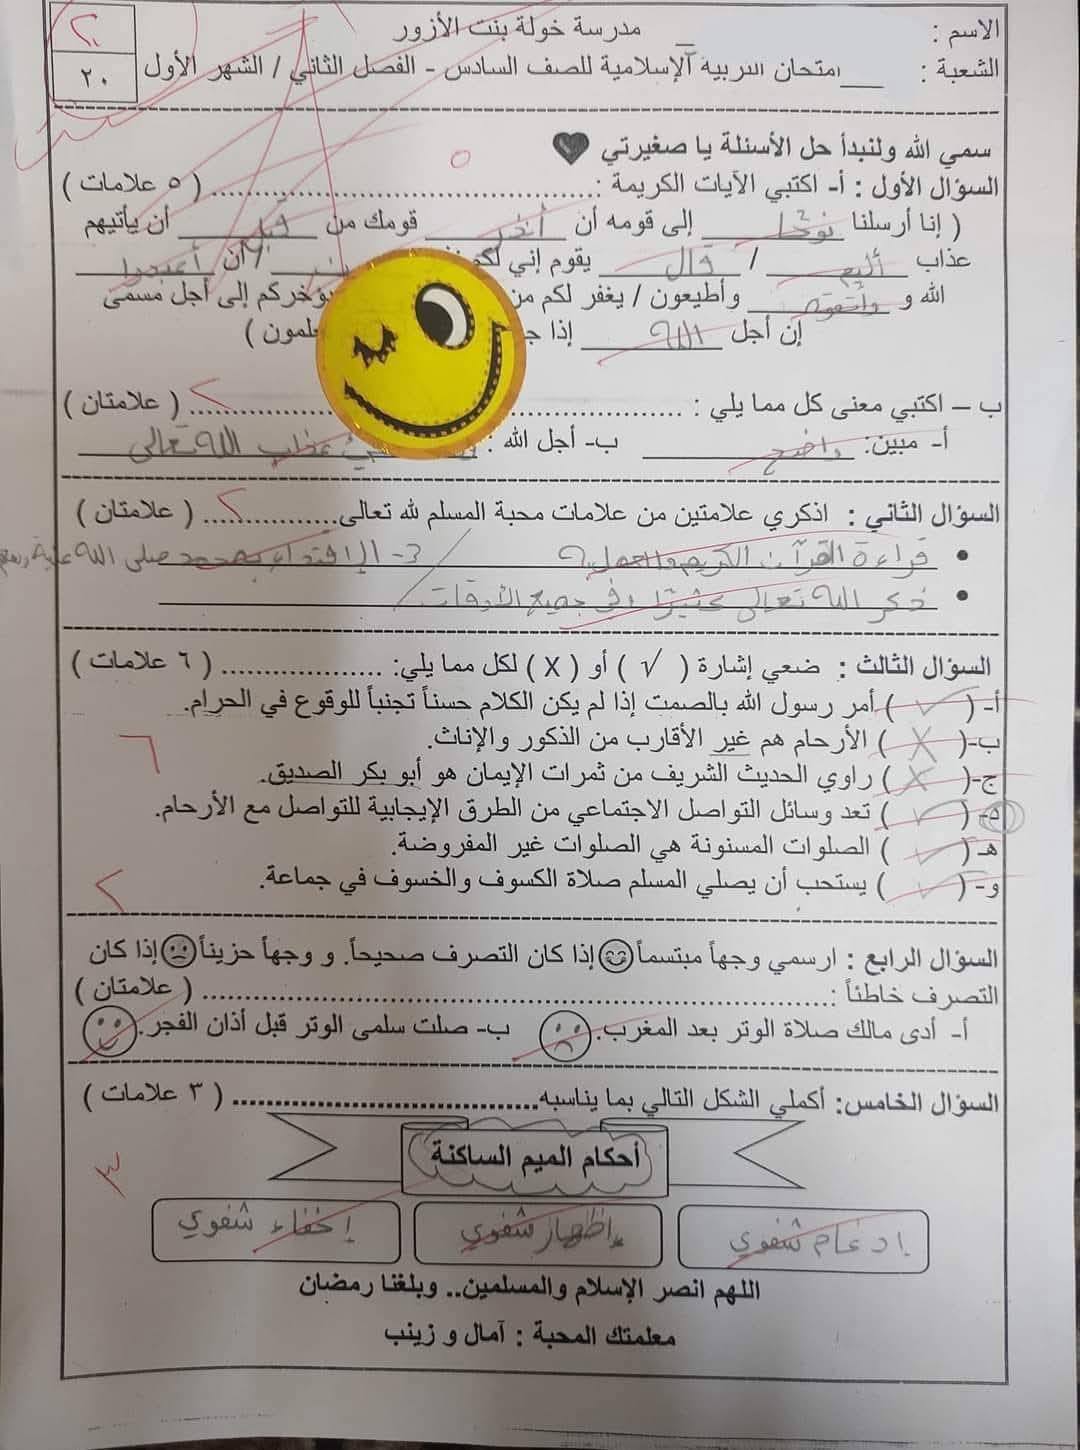 الاسم : مدرسة خولة بنت الأزور
٢٠
٢٠
الشعبة : امتحان التربية الإسلامية للصف السادس - الفصل الثاني / الشهر الأول
سمي الله ولنبدأ حل الأسئلة يا صغيرتي ♥
٥
السؤال الأول : أ- اكتبي الآيات الكريمة :.................................... ( ٥ علامات )
( إنا أرسلنا نوحا إلى قومه أن أنذر قومك من قبل أن يأتيهم
عذاب أليم / قال يقوم إني لكم / أن أعبدوا
الله و واتقوه وأطيعون / يغفر لكم من يؤخركم إلى أجل مسمى
إن أجل الله إذا ج لمون )
ب – اكتبي معنى كل مما يلي : .................................... ( علامتان )
٢
أ- مبين: واضح ب- أجل الله : عذاب الله تعالى
السؤال الثاني : اذكري علامتين من علامات محبة المسلم لله تعالى.................. ( علامتان )
٢
• قراءة القرآن الكريم والعمل به 3- الإقتداء بمحمد صلى الله عليه
• ذكر الله تعالى كثيرًا في جميع الأوقات
السؤال الثالث : ضعي إشارة ( √ ) أو ( X ) لكل مما يلي: .................. ( ٦ علامات )
أ- ( ✓ ) أمر رسول الله بالصمت إذا لم يكن الكلام حسناً تجنباً للوقوع في الحرام.
ب-( X ) الأرحام هم غير الأقارب من الذكور والإناث.
٦
ج-( X ) راوي الحديث الشريف من ثمرات الإيمان هو أبو بكر الصديق.
د- ( ✓ ) تعد وسائل التواصل الاجتماعي من الطرق الإيجابية للتواصل مع الأرحام.
هـ ( ✓ ) الصلوات المسنونة هي الصلوات غير المفروضة.
و- ( ✓ ) يستحب أن يصلي المسلم صلاة الكسوف والخسوف في جماعة.
٢
السؤال الرابع : ارسمي وجهاً مبتسماً إذا كان التصرف صحيحاً. و وجهاً حزيناً إذا كان
التصرف خاطئاً :................................................ ( علامتان )
أ- أدى مالك صلاة الوتر بعد المغرب. ب- صلت سلمى الوتر قبل أذان الفجر.
السؤال الخامس: أكملي الشكل التالي بما يناسبه.................................... ( ٣ علامات )
أحكام الميم الساكنة
٣
إدغام شفوي إظهار شفوي إخفاء شفوي
اللهم انصر الإسلام والمسلمين.. وبلغنا رمضان
معلمتك المحبة : آمال و زينب